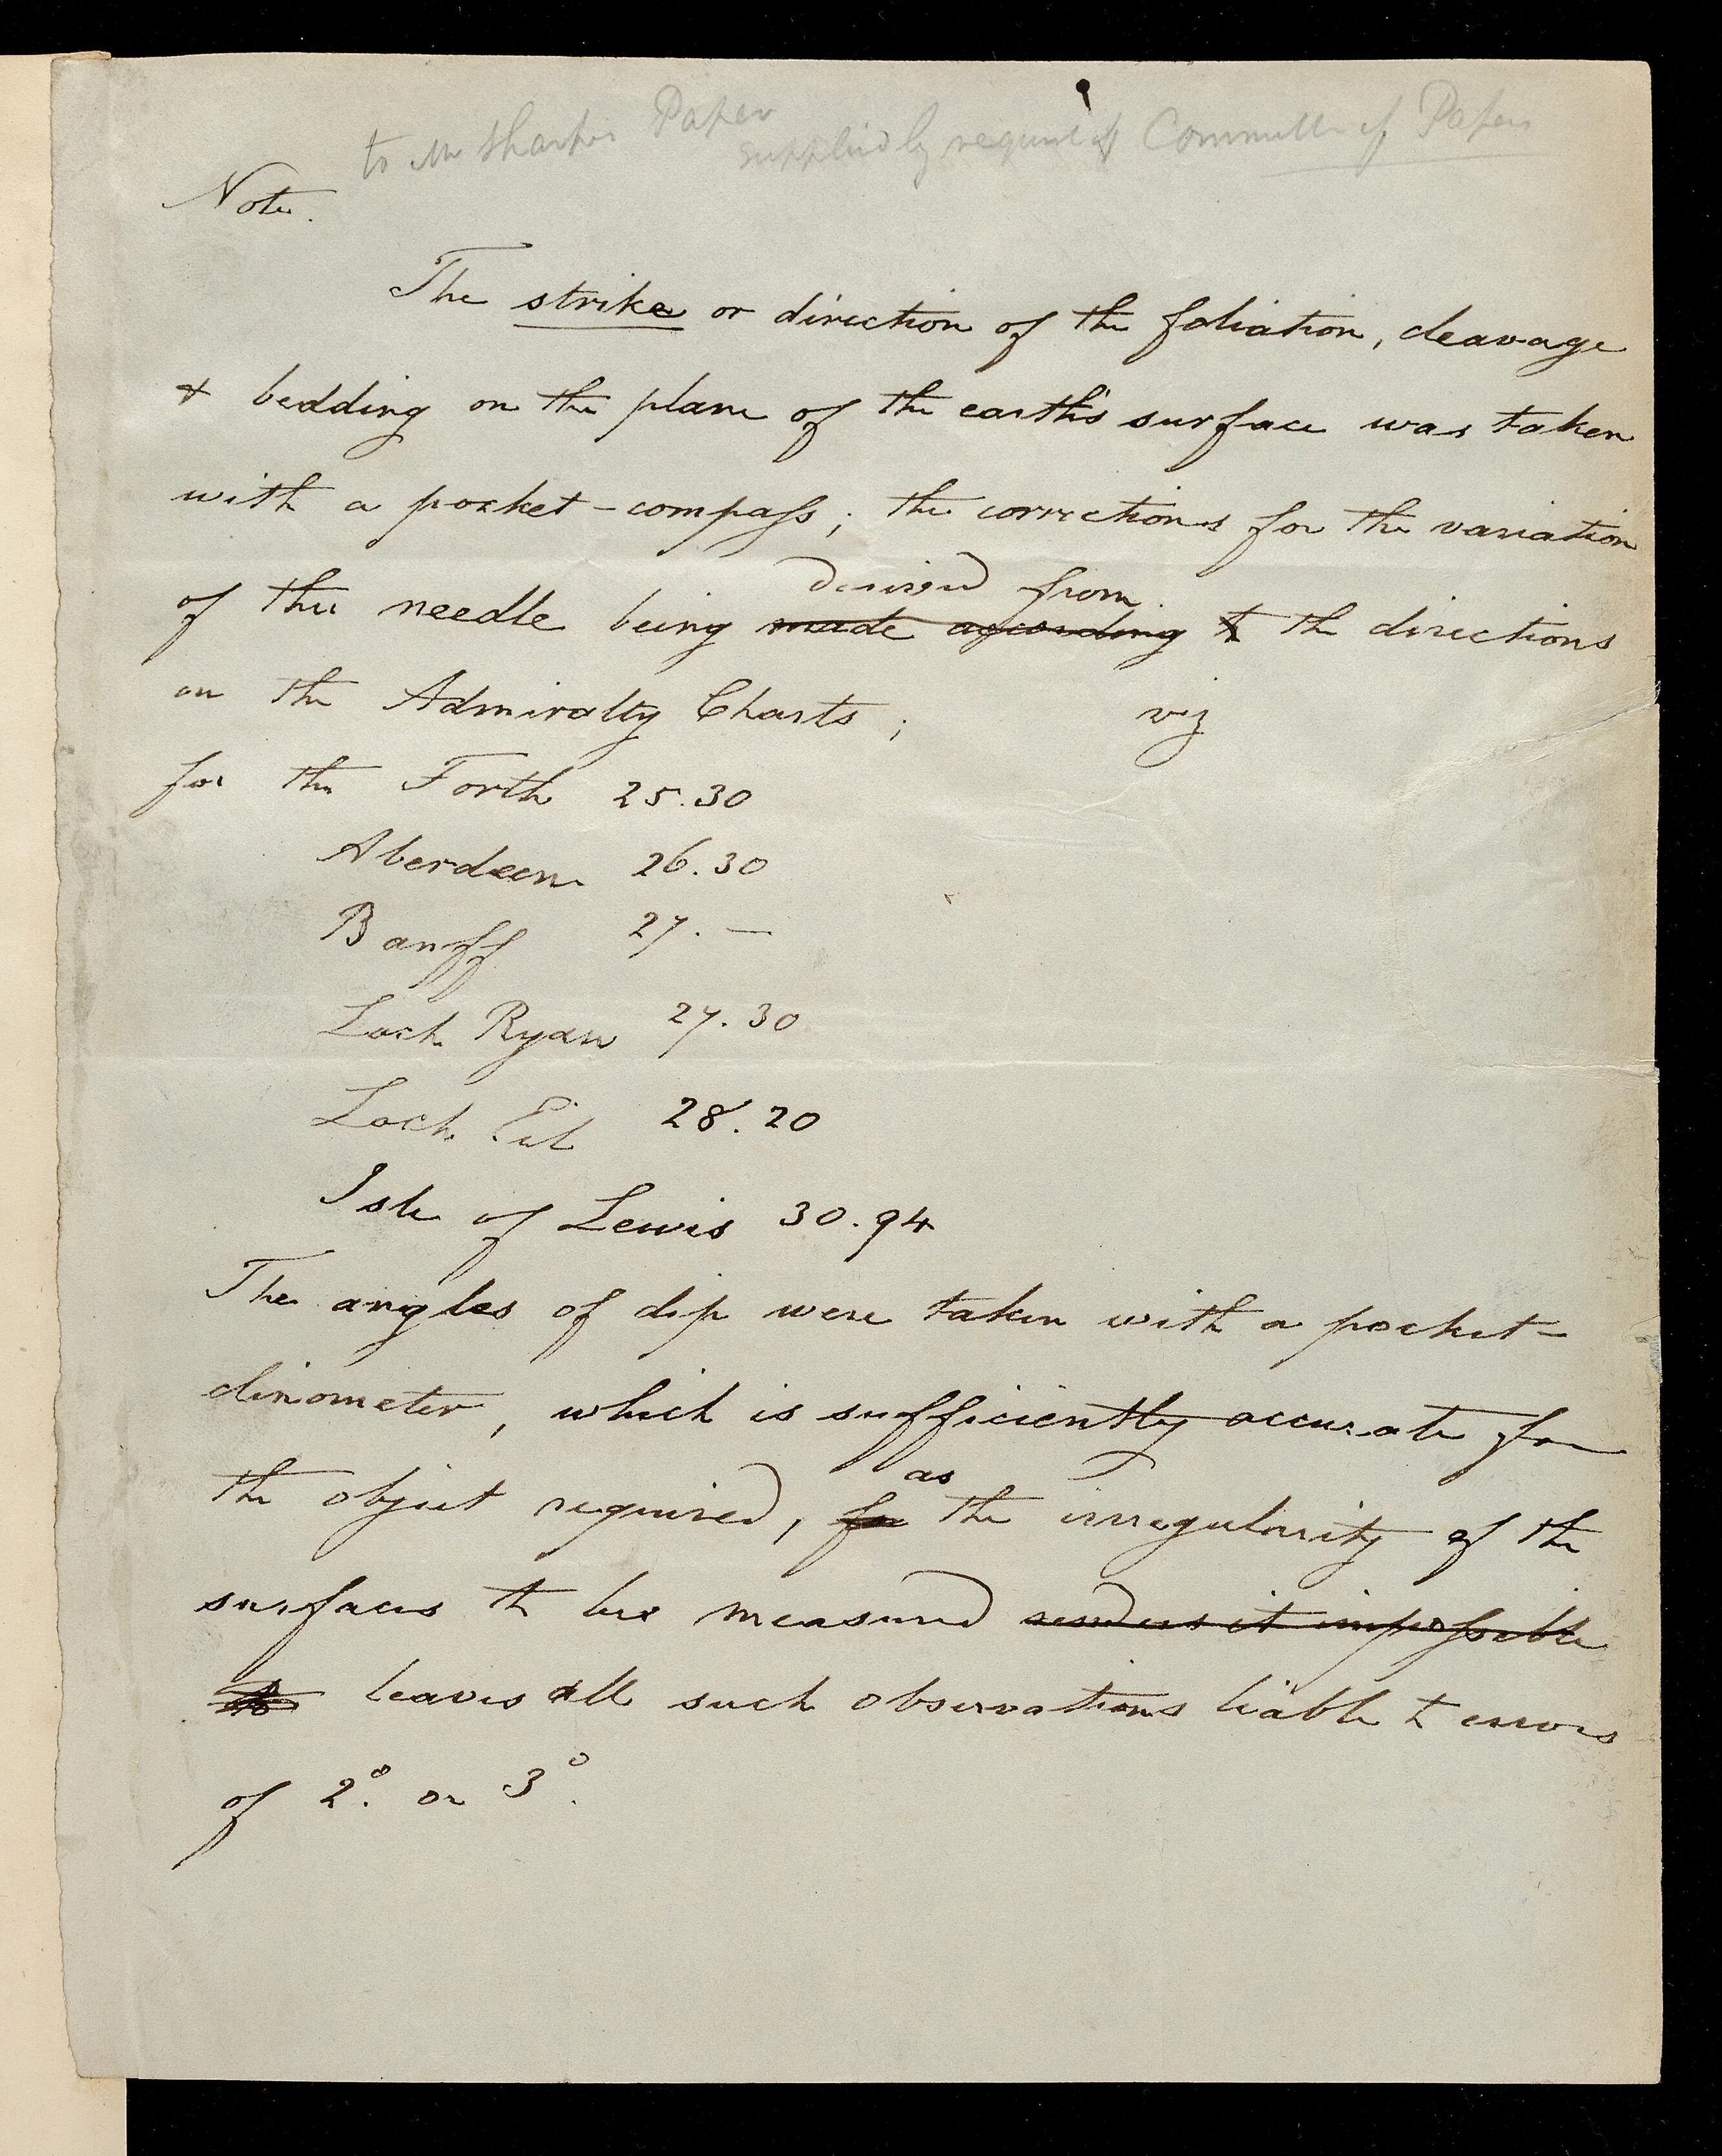 to Mr Sharpes Paper
supplied by request of Committee of Papers
Note.
The strike or direction of the foliation, cleavage
& bedding on the plane of the earth's surface was taken
with a pocket-compass; the corrections for the variation
derived from
of the needle being made according to the directions
on the Admiralty Charts; viz
for the Forth 25.30
Aberdeen 26.30
Banff 27. —
Loch Ryan 27.30
Loch Eil 28.20
Isle of Lewis 30.94
The angles of dip were taken with a pocket-
clinometer, which is sufficiently accurate for
as
the object required, for the irregularity of the
surfaces to be measured renders it impossible
to leaves all such observations liable to errors
of 2°. or 3°.